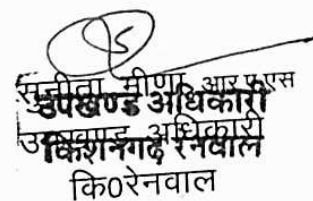 सुनीता मीणा, आर ए एस
उपखण्ड अधिकारी
उपखण्ड अधिकारी
किशनगढ़ रेनवाल
कि0रेनवाल